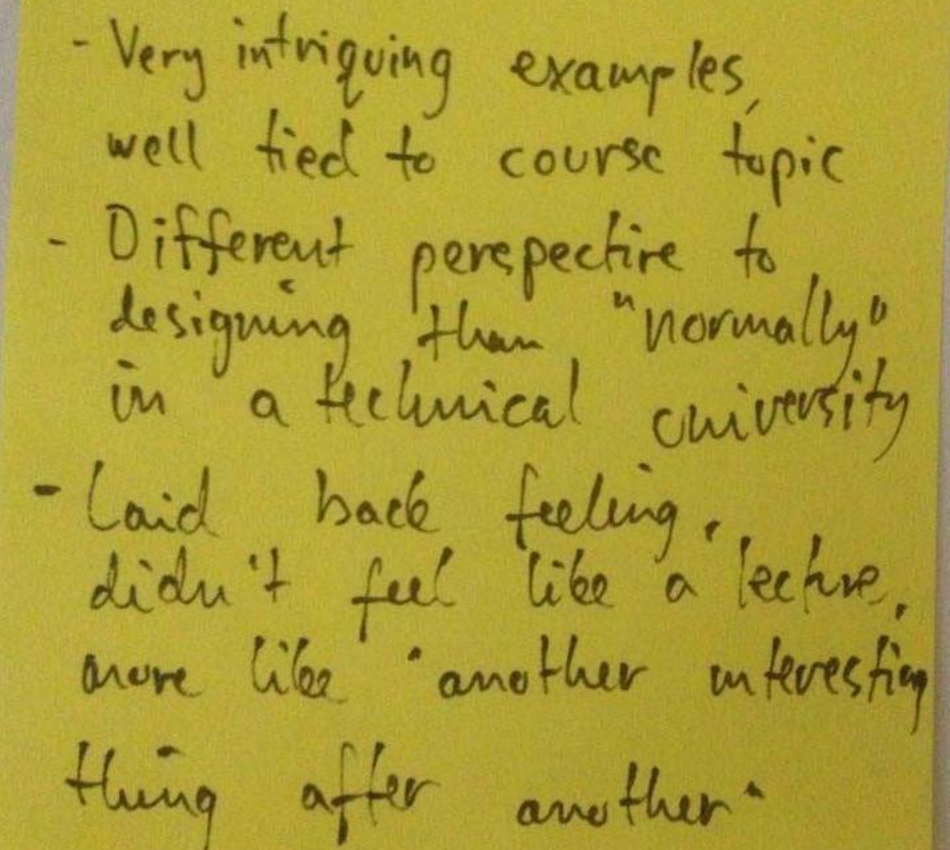 - Very intriguing examples,
well tied to course topic
- Different perspective to
designing than "normally"
in a technical university
- Laid back feeling,
didn't feel like a lecture,
more like "another interesting
thing after another"